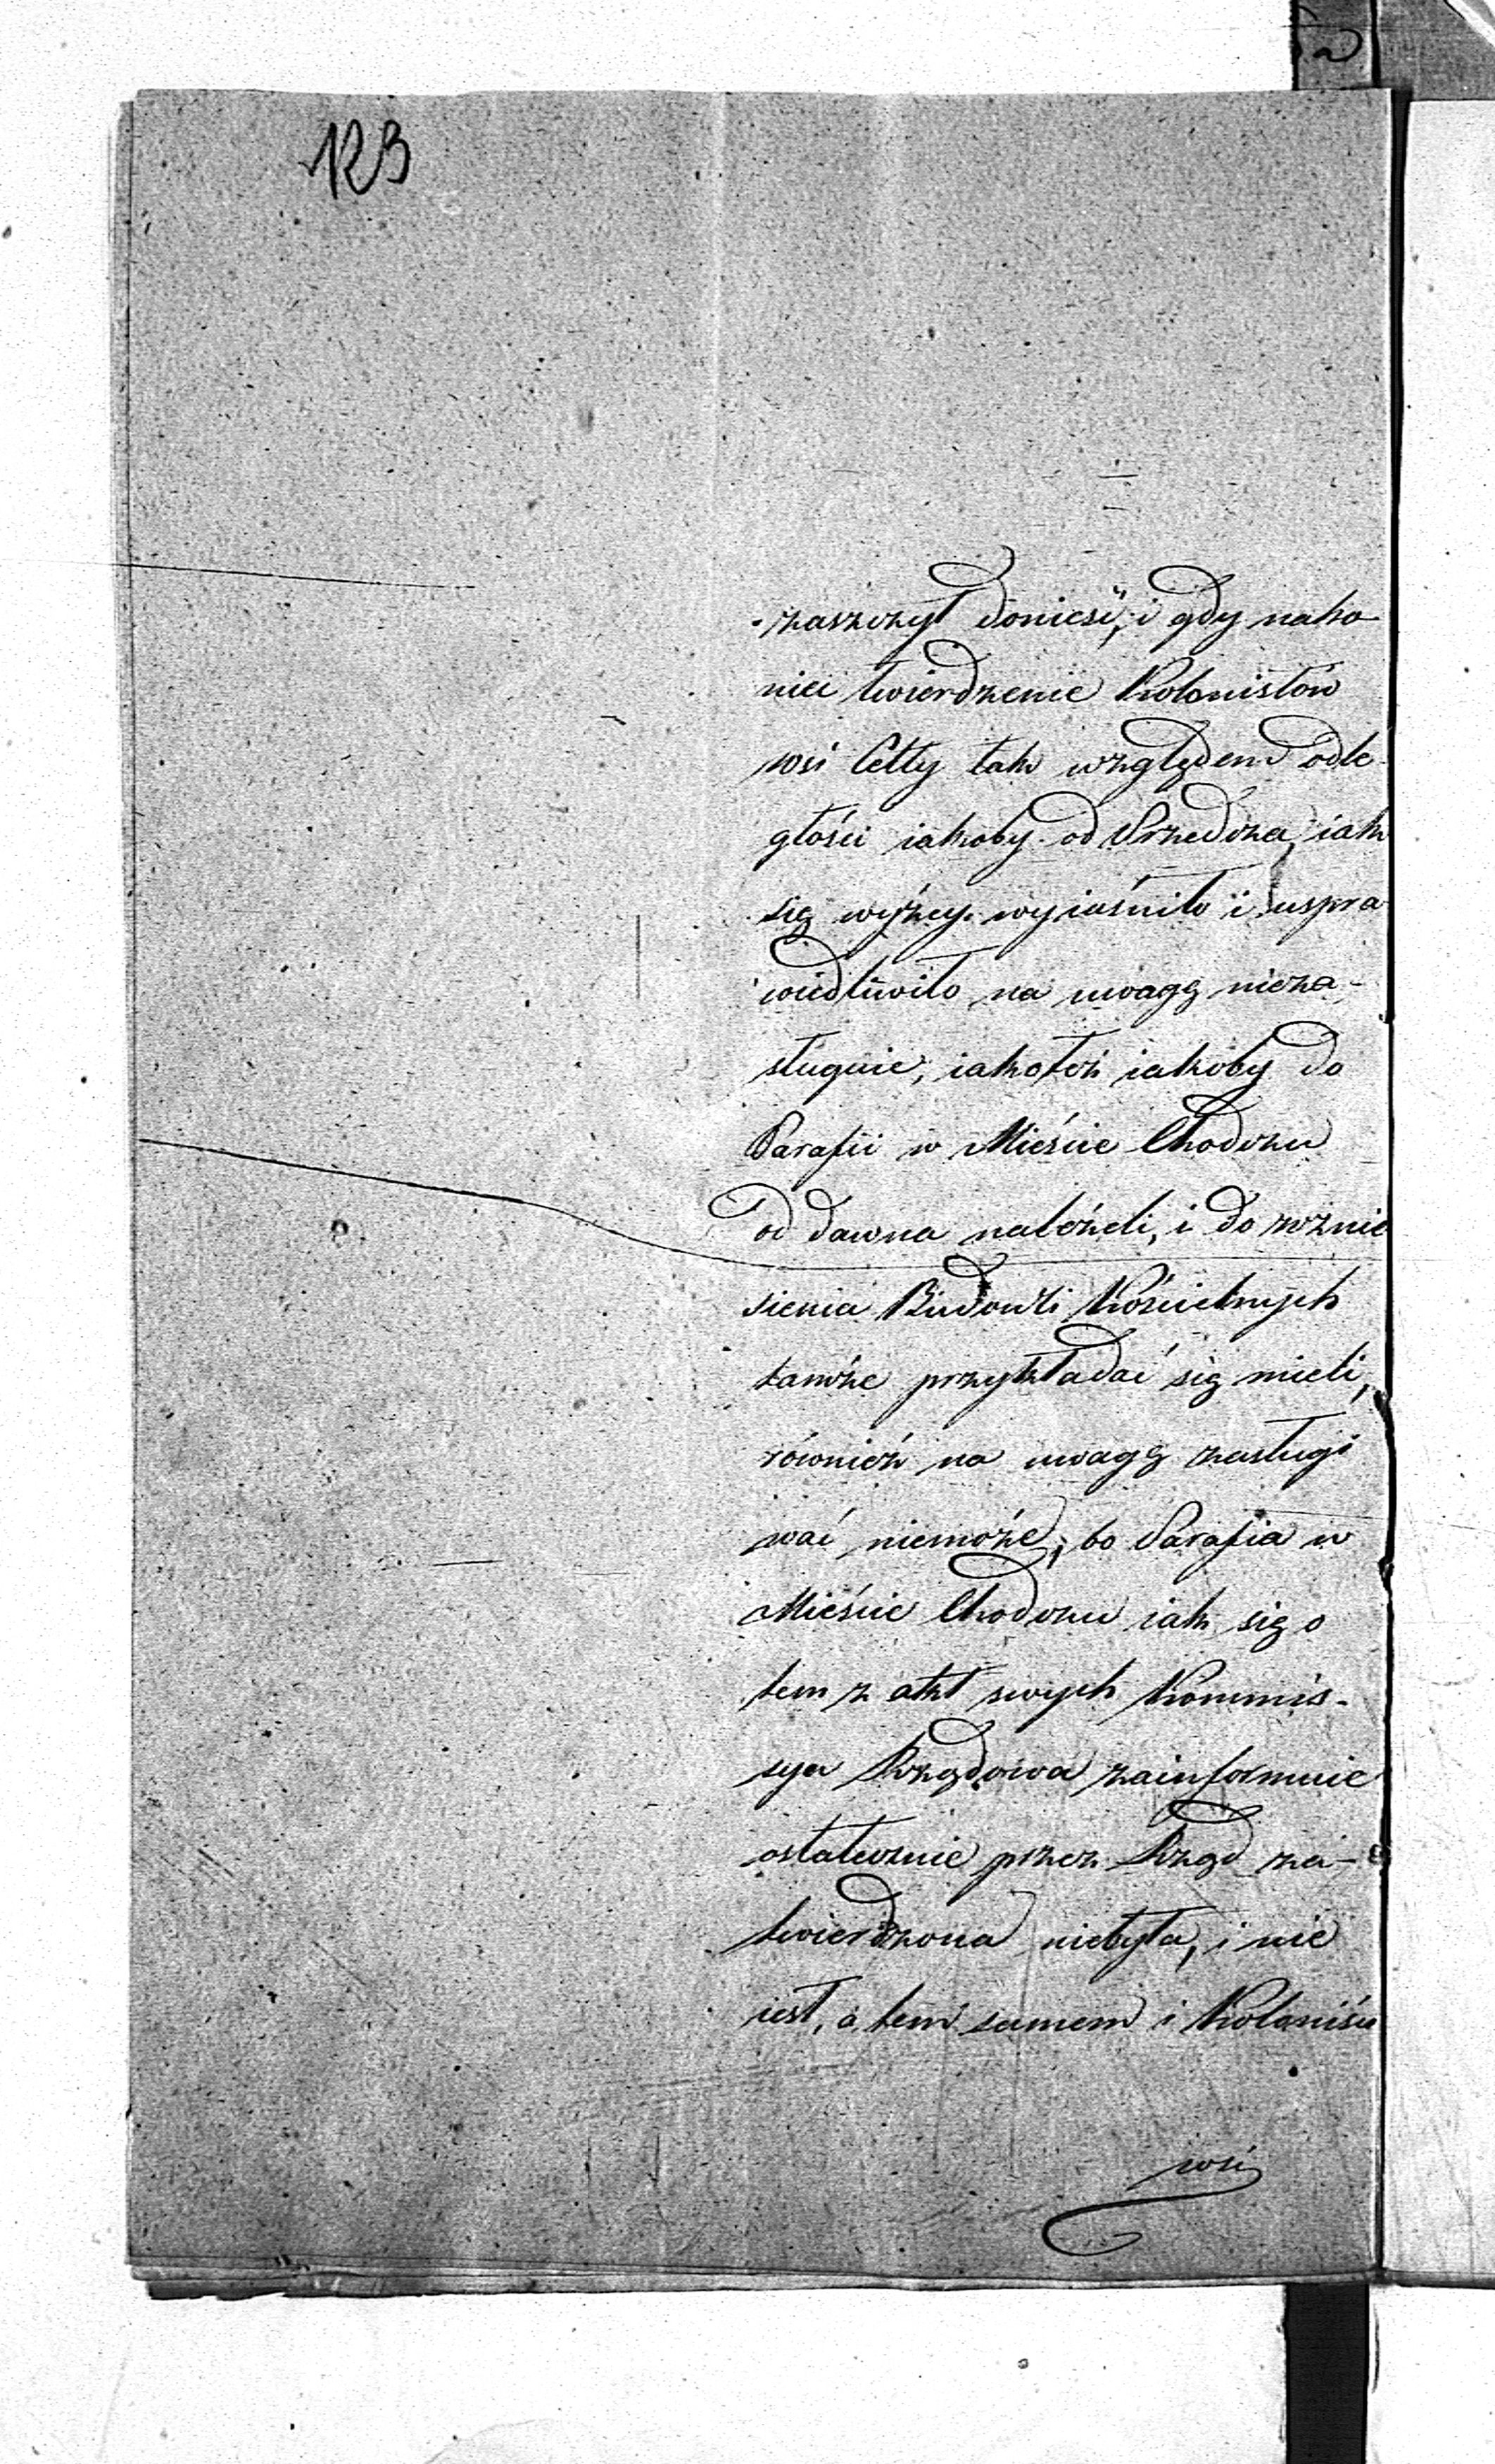 123
zaszczyt donieść, i gdy nako
niec twierdzenie Kolonistów
wsi Cetty tak względem odle
głości iakoby od Przedcza, iak
się wyżey wyiaśniło i uspra
wiedliwiło na uwagę nieza-
sługuie, iakoteż iakoby do
Parafii w Mieście Chodczu
od dawna należeli, i do wznie
sienia Budowli Kościelnych
tamże przykładać się mieli,
również na uwagę zasługi
wać niemoże, bo Parafia w
Mieście Chodczu iak się o
tem z akt swych Kommis-
sya Rządowa zainformuie
ostatecznie przez Rząd za-
twierdzona niebyła, i nie
iest, a tem samem i Koloniści
wsi